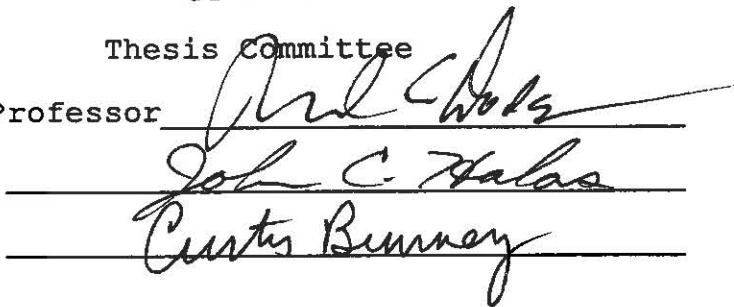 Thesis Committee
Professor
John C. Halas
Curtis Burney